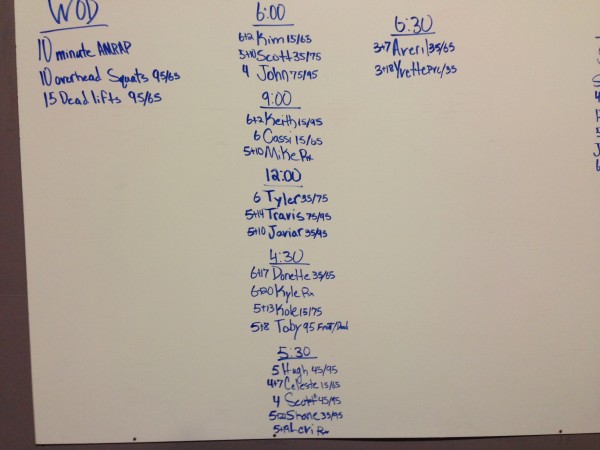 WOD
10 minute AMRAP
10 overhead Squats 95/65
15 Deadlifts 95/65
6:00
6+2 Kim 15/65
5+10 Scott 35/75
4 John 75/95
9:00
6+2 Keith 15/95
6 Cassi 15/65
5+10 Mike Rx
12:00
6 Tyler 35/75
5+14 Travis 75/95
5+10 Javiar 35/95
4:30
6+17 Donette 35/65
6+20 Kyle Rx
5+13 Kole 15/75
5+8 Toby 95 Front/Dead
5:30
5 Hugh 45/95
4+7 Celeste 15/65
4 Scott 45/95
Shane 35/95
Rx
6:30
3+7 Averil 35/65
3+18 Yvette PVC/35